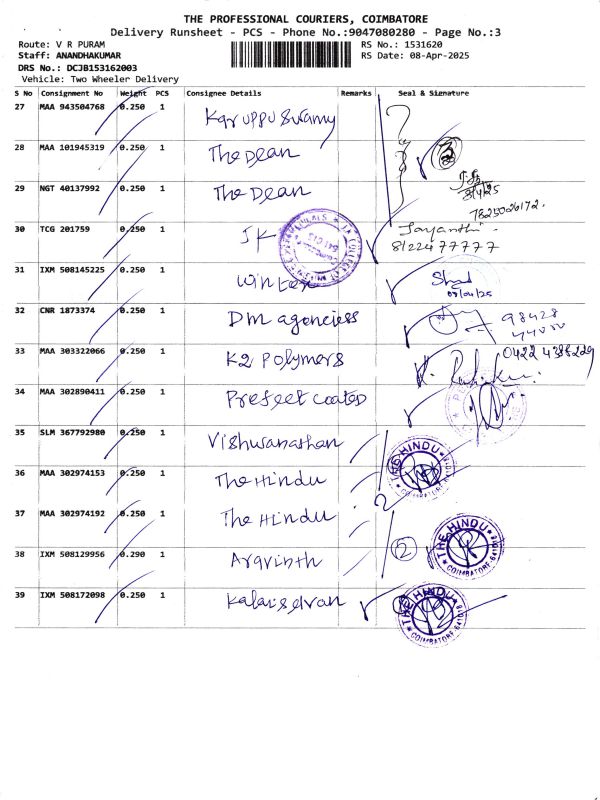 THE PROFESSIONAL COURIERS, COIMBATORE
Delivery Runsheet - PCS - Phone No.:9047080280 - Page No.:3
Route: V R PURAM
RS No.: 1531620
Staff: ANANDHAKUMAR
RS Date: 08-Apr-2025
DRS No.: DCJB153162003
Vehicle: Two Wheeler Delivery
S No Consignment No Weight PCS Consignee Details Remarks Seal & Signature
27 MAA 943504768 0.250 1 Karuppuswamy
28 MAA 101945319 0.250 1 The Dean
29 NGT 40137992 0.250 1 The Dean
8/4/25
7825026172.
30 TCG 201759 0.250 1 JK Jayanthi
8122477777
31 IXM 508145225 0.250 1 Winter
09/04/25
32 CNR 1873374 0.250 1 Dm agenciess
98428
33 MAA 303322066 0.250 1 K2 Polymers
0422 4388229
34 MAA 302890411 0.250 1 Prefeet coated
35 SLM 367792980 0.250 1 Vishwanathan
THE HINDU
36 MAA 302974153 0.250 1 The Hindu
2
37 MAA 302974192 0.250 1 The Hindu
38 IXM 508129956 0.290 1 Aravinth
2
THE HINDU
COIMBATORE-641018
39 IXM 508172098 0.250 1 Kalaiselvan
THE HINDU
COIMBATORE-641018